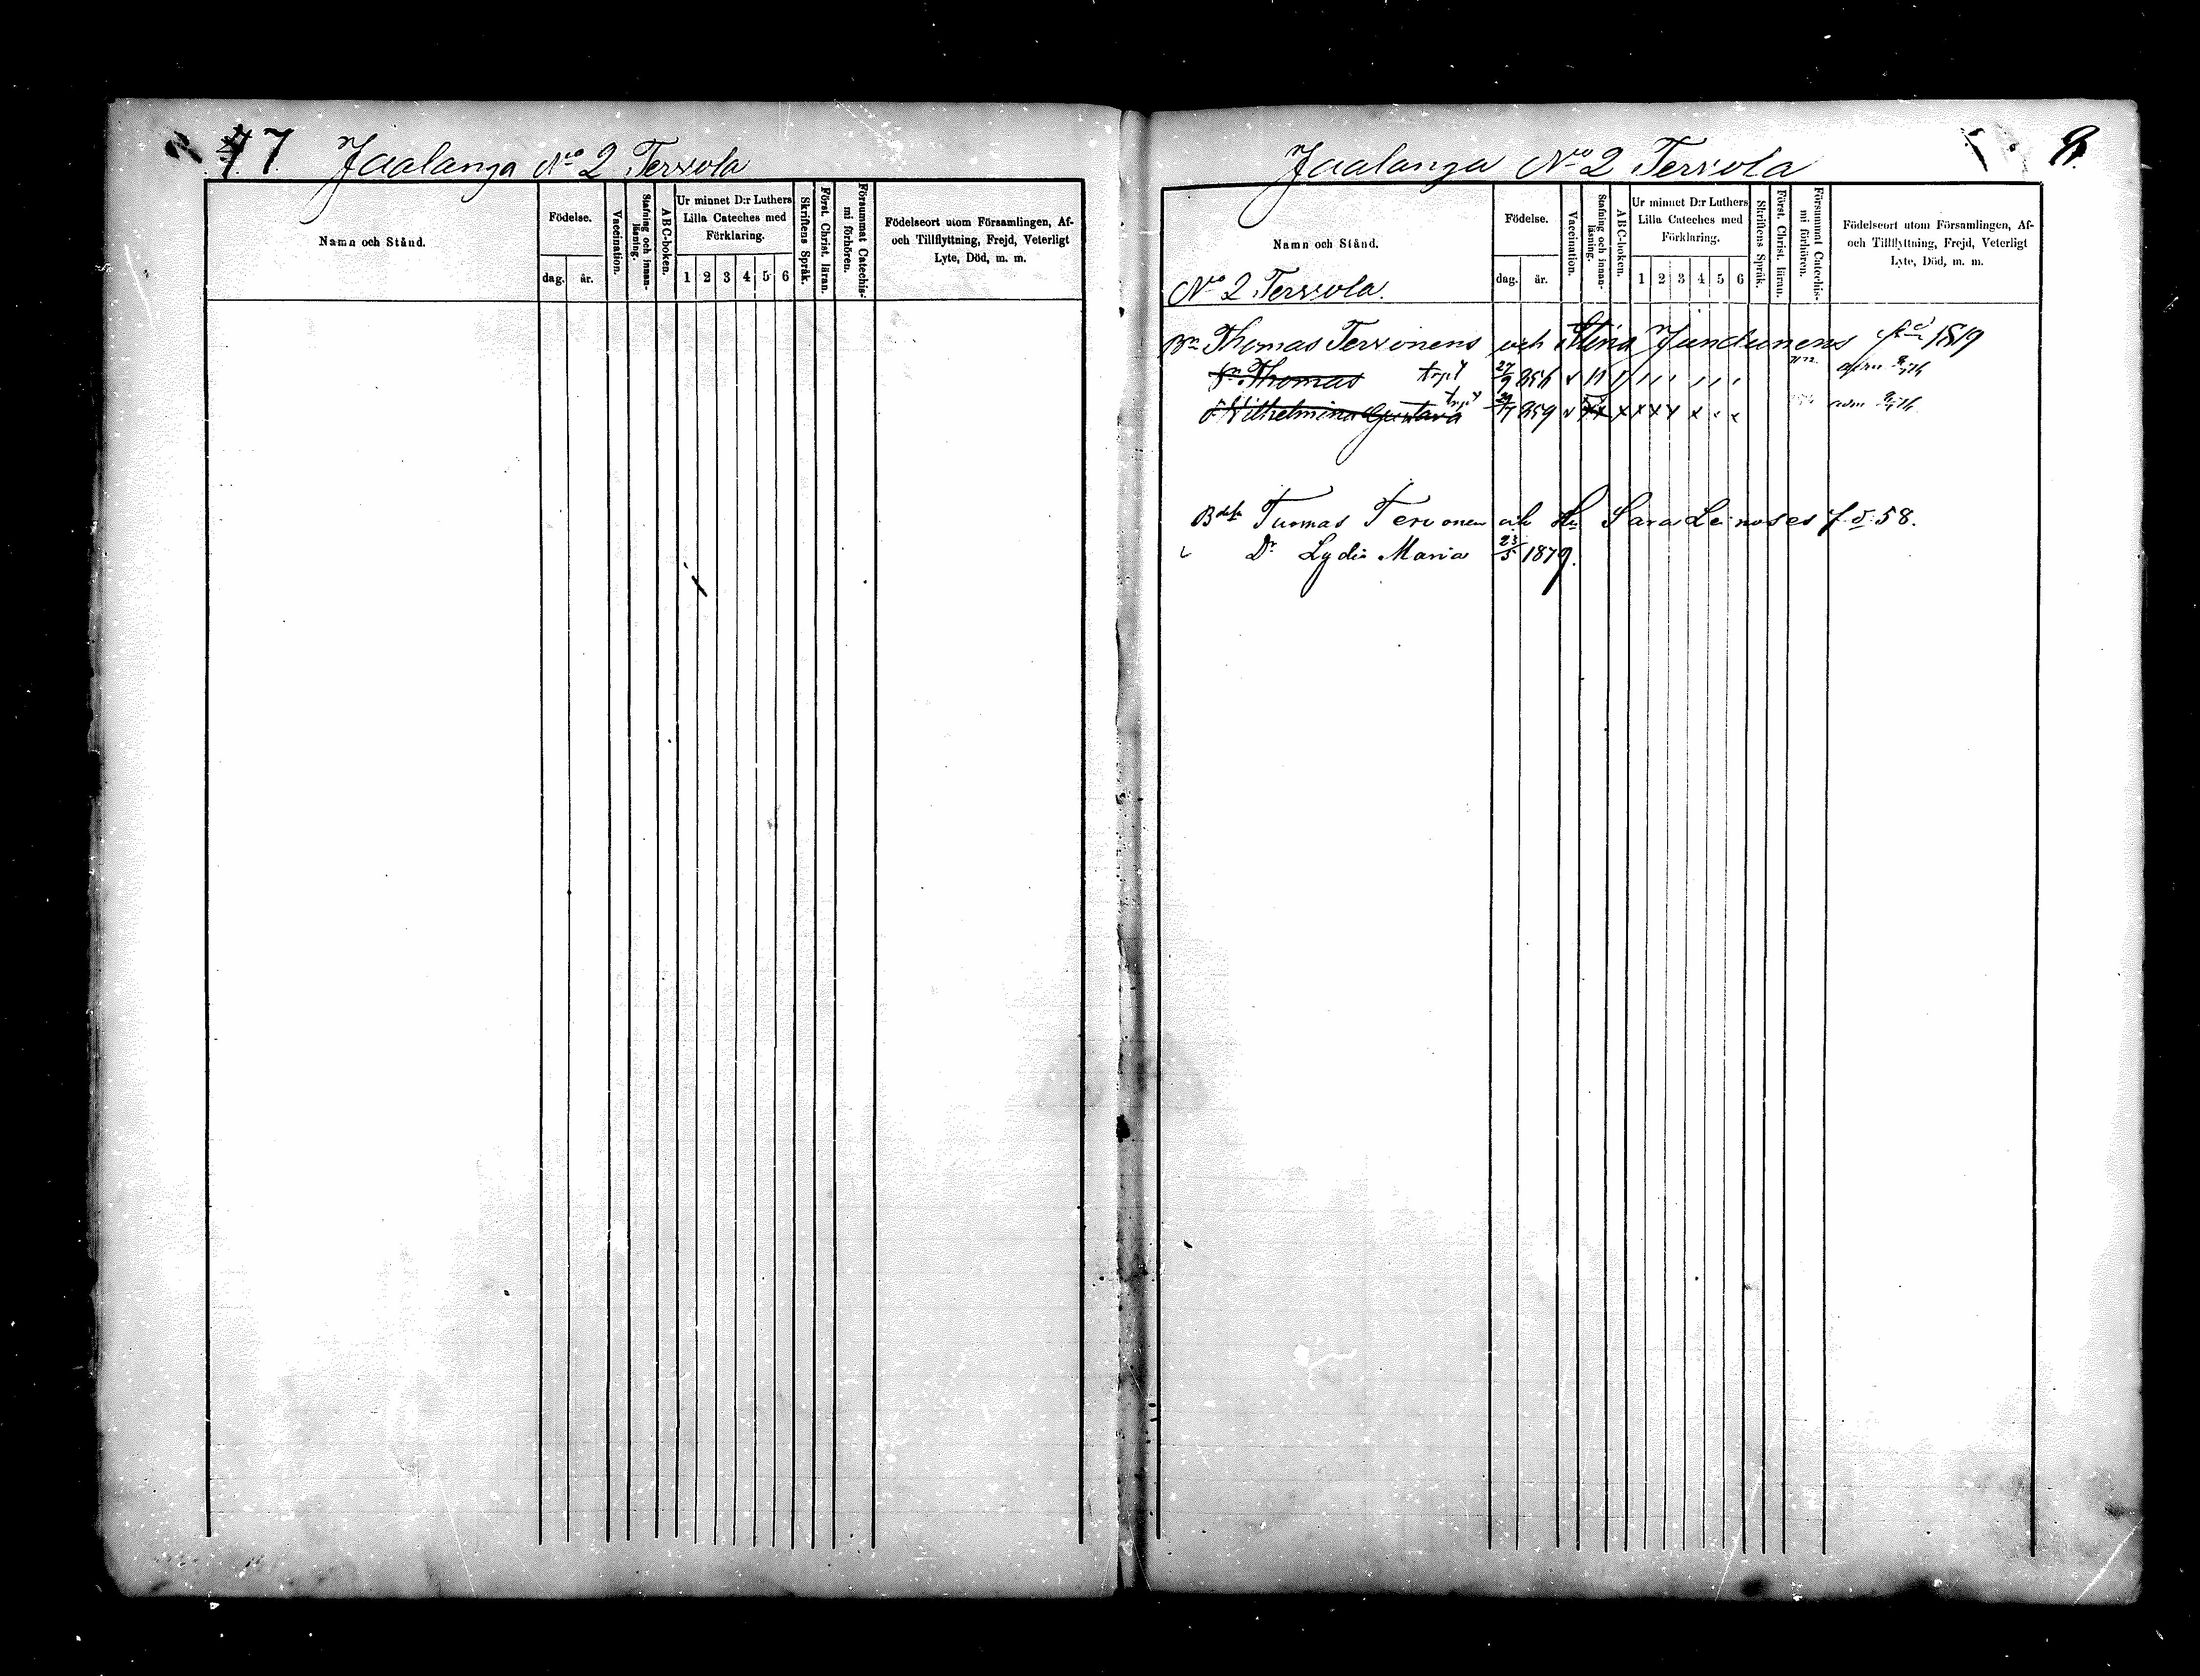 7
Jaalanga No 2 Tervola
Namn och Stånd.
Födelse.
dag.
år.
Vaccination.
Stafning och innanläsning.
ABC-boken.
Ur minnet D:r Luthers
Lilla Cateches med
Förklaring.
1 2 3 4 5 6
Skriftens Språk.
Först. Christ. läran.
Försummat Catechismi förhören.
Födelseort utom Församlingen, Af-
och Tillflyttning, Frejd, Veterligt
Lyte, Död, m. m.
Jaalanga No 2 Tervola
8.
Namn och Stånd.
No 2 Tervola.
Födelse.
dag.
år.
Vaccination.
Stafning och innanläsning.
ABC-boken.
Ur minnet D:r Luthers
Lilla Cateches med
Förklaring.
1 2 3 4 5 6
Skriftens Språk.
Först. Christ. läran.
Försummat Catechismi förhören.
Födelseort utom Församlingen, Af-
och Tillflyttning, Frejd, Veterligt
Lyte, Död, m. m.
Bn Thomas Tervonens och Stina Jundunens 1819
Sn Thomas 27/9 856
Wilhelmina Gustava 859
Tuomas Tervonen och Hu Sara Leinoses f. 58.
Dr Lydia Maria 23/5 1879.